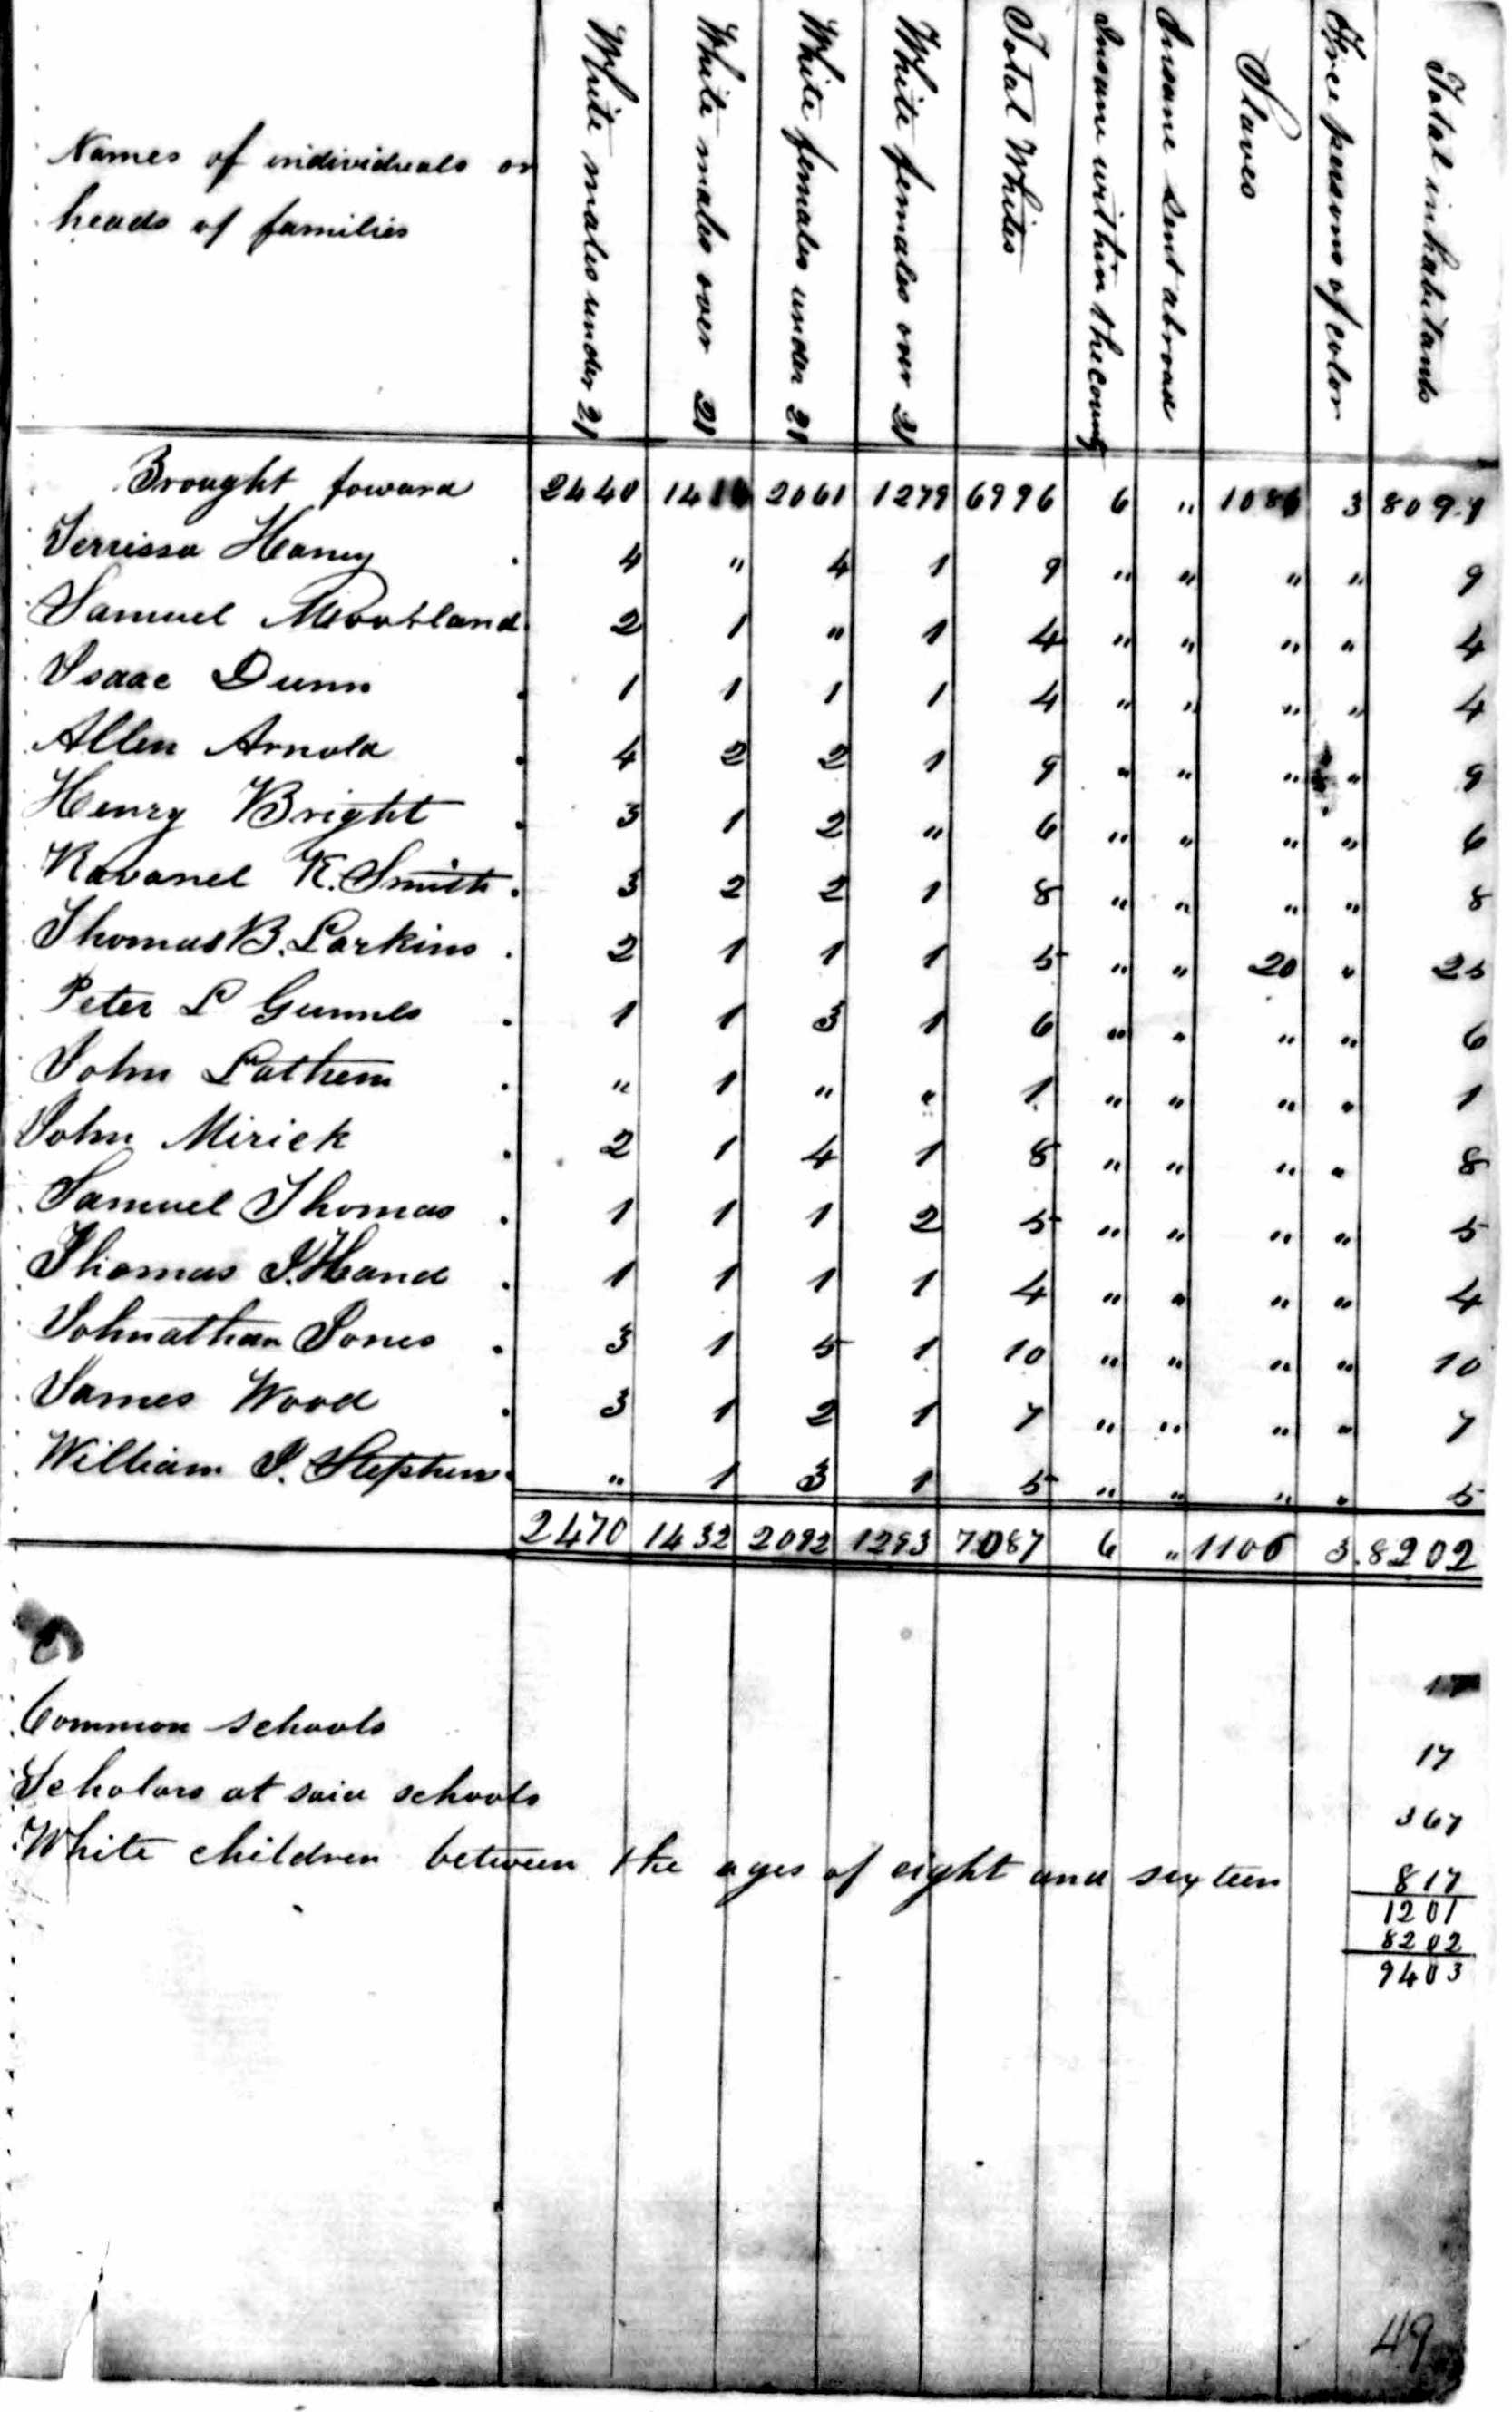 Names of individuals or
heads of families
White males under 21
White males over 21
White females under 21
White females over 21
Total Whites
Insane within the county
Insane sent abroad
Slaves
Free persons of color
Total inhabitants
Brought foward 2440 2061 1279 6996 6 " 3
Terrissa Haney . 4 " 4 1 9 " " " " 9
Samuel . 2 1 " 1 4 " " " " 4
Isaac Dunn . 1 1 1 1 4 " " " " 4
Allen Arnold . 4 2 2 1 9 " " " " 9
Henry Bright . 3 1 2 " 6 " " " " 6
Ravanel K. Smith . 3 2 2 1 8 " " " " 8
Thomas B. Larkins . 2 1 1 1 5 " " 20 " 25
Peter L . 1 1 3 1 6 " " " " 6
John Lathem . " 1 " " 1 " " " " 1
John Mirick . 2 1 4 1 8 " " " " 8
Samuel Thomas . 1 1 1 2 5 " " " " 5
Thomas J. Hand . 1 1 1 1 4 " " " " 4
Johnathan Jones . 3 1 5 1 10 " " " " 10
James Wood . 3 1 2 1 7 " " " " 7
William J. Stephens . " 1 3 1 5 " " " " 5
2470 1432 2092 1293 7087 6 " 1106 3 8202
Common schools 17
Scholars at said schools 367
White children between the ages of eight and sixteen 817
1201
8202
9403
49